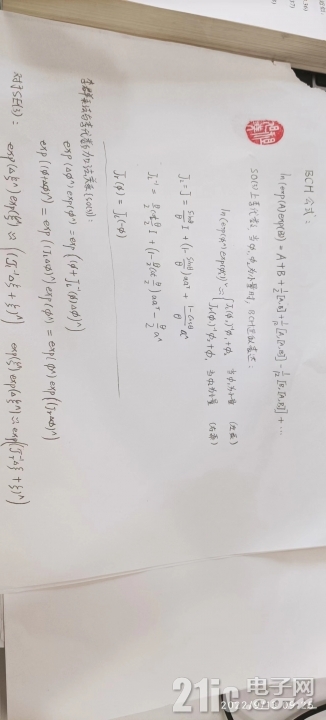 BCM 公式:
ln(exp(A)exp(B)) = A + B + 1/2[A,B] + 1/12[A,[A,B]] - 1/12[B,[A,B]] + ···
SO(3)上李代数, 当φ₁ φ₂为小量时, BCH近似表达:
ln(exp(φ₁^)exp(φ₂^))^∨ ≈ { Jₗ(φ₂)⁻¹φ₁+φ₂ 当φ₁为小量 (左乘)
Jᵣ(φ₁)⁻¹φ₂+φ₁ 当φ₂为小量 (右乘)
Jₗ = J = sinθ/θ I + (1 - sinθ/θ)aaᵀ + (1-cosθ)/θ a^
Jₗ⁻¹ = θ/2 cot θ/2 I + (1 - θ/2 cot θ/2)aaᵀ - θ/2 a^
Jᵣ(φ) = Jₗ(-φ)
exp(Δφ^)exp(φ^) = exp((φ+Jₗ⁻¹(φ)Δφ)^)
exp((φ+Δφ)^) = exp((JₗΔφ)^)exp(φ^) = exp(φ^)exp((JᵣΔφ)^)
对于SE(3):
exp(Δξ^)exp(ξ^) ≈ exp((Jₗ⁻¹Δξ+ξ)^) exp(ξ^)exp(Δξ^) ≈ exp((Jᵣ⁻¹Δξ+ξ)^)
21ic 电子网